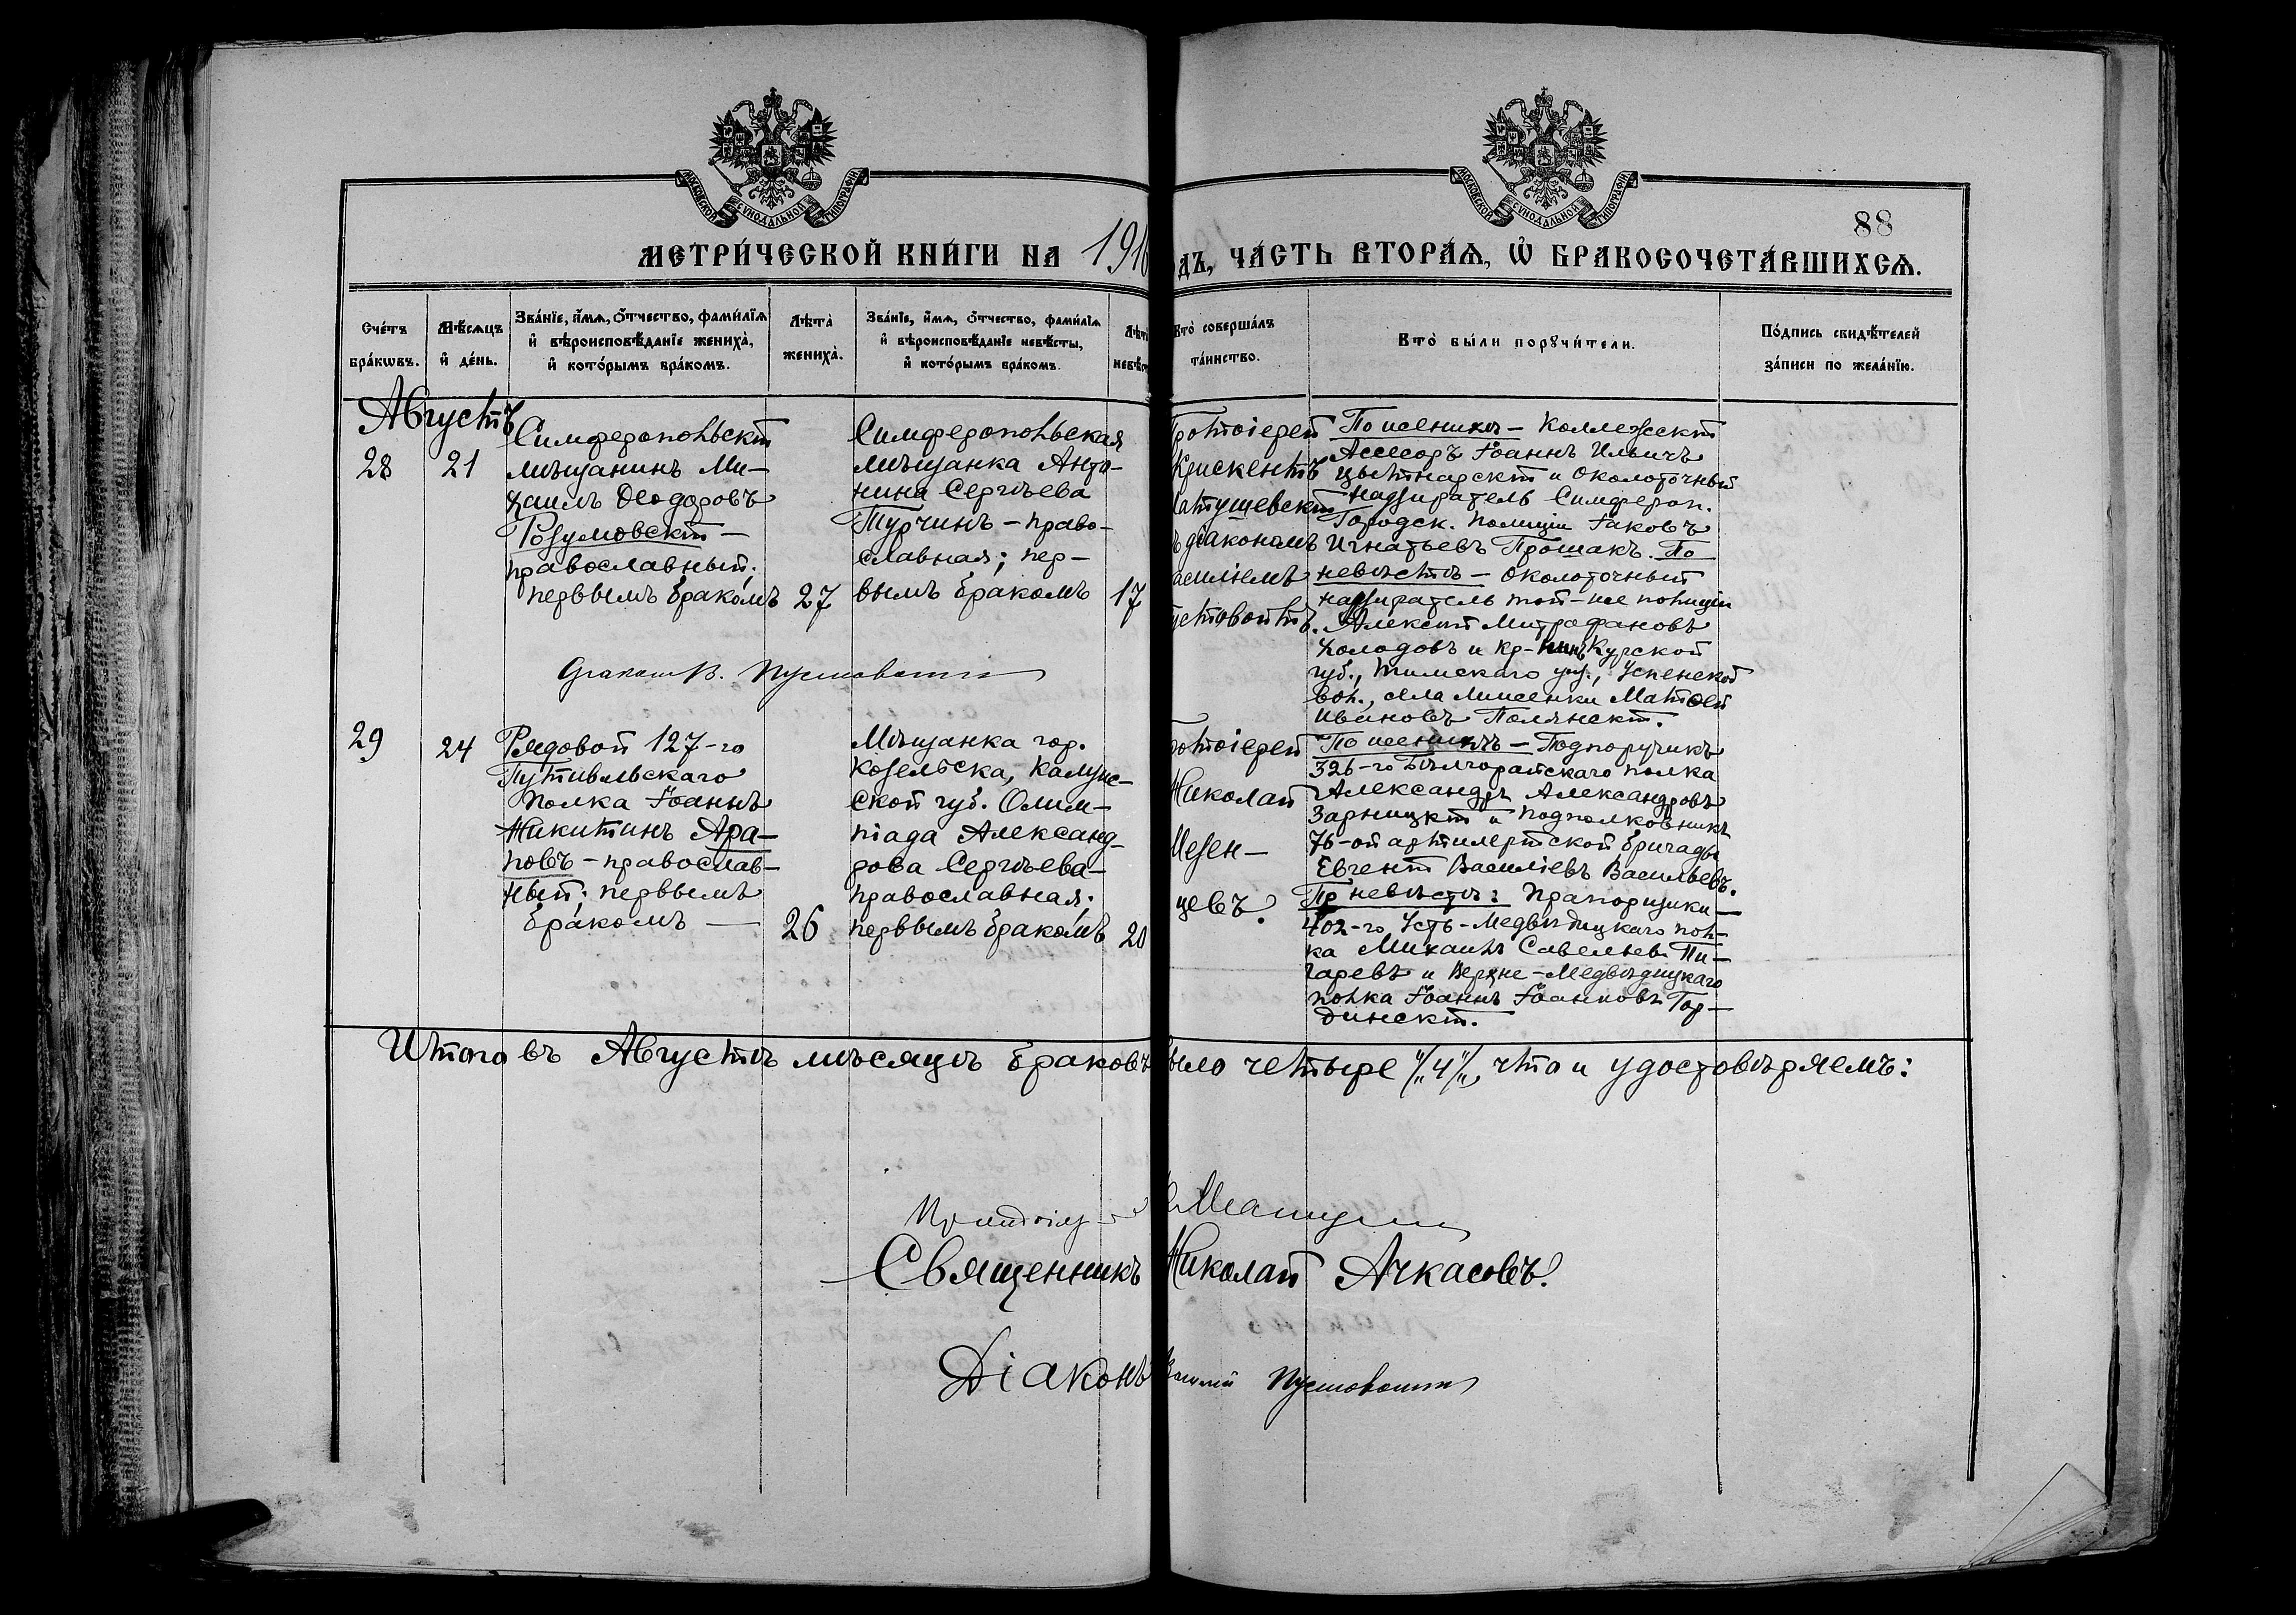 МОСКОВСКОЙ СУНОДАЛЬНОЙ ТИПОГРАФІИ
МОСКОВСКОЙ СУНОДАЛЬНОЙ ТИПОГРАФІИ
88
МЕТРИ́ЧЕСКОЙ КНИ́ГИ НА 1916
ДЪ, ЧА́СТЬ ВТОРА́Я, Ѽ БРАКОСОЧЕТА́ВШИХСЯ.
Сче́тъ бра́кѡвъ.
Мѣ́сяцъ и҆ де́нь.
Зва́нїе, и҆́мя, ѻ҆́тчество, фами́лїя
и҆ вѣроисповѣ́данїе жениха̀,
и҆ кото́рымъ бра́комъ.
Лѣта̀ жениха̀.
Зва́нїе, и҆́мя, ѻ҆́тчество, фами́лїя
и҆ вѣроисповѣ́данїе невѣ́сты,
и҆ кото́рымъ бра́комъ.
Кто̀ соверша́лъ
та́инство.
Кто̀ бы́ли порꙋчи́тели.
По́дпись свидѣ́телей
за́писи по жела́нїю.
Августъ
28
21
Симферопольскій
мѣщанинъ Ми-
хаилъ Ѳеодоровъ
Розумовскій —
православный;
первымъ бракомъ
27
Симферопольская
мѣщанка Анто-
нина Сергѣева
Турчинъ — право-
славная; пер-
вымъ бракомъ
17
Протоіерей
Крискентъ
Матушевскій
ъ діакономъ
асиліемъ
устовойтъ.
По женихѣ — Коллежскій
Ассесоръ Іоаннъ Ильичъ
Цвѣтнарскій и околоточный
надзиратель Симфероп.
Городск. полиціи Іаковъ
Игнатьевъ Прошакъ. По
невѣстѣ — околоточный
надзиратель той-же полиціи
Алексій Митрофановъ
Холодовъ и кр-нинъ Курской
губ., Тимскаго уѣз., Успенской
вол., села Лисенки Матѳей
Ивановъ Полянскій.
Діаконъ В. Пустовойтъ
29
24
Рядовой 127-го
Путивльскаго
полка Іоаннъ
Никитинъ Ара-
повъ — православ-
ный; первымъ
бракомъ —
26
Мѣщанка гор.
Козельска, Калуж-
ской губ. Олим-
піада Александ-
рова Сергѣева —
православная;
первымъ бракомъ
20
ротоіерей
Николай
Мезен-
цевъ.
По женихѣ — Подпоручикъ
326-го Бѣлгорайскаго полка
Александръ Александровъ
Зарницкій и подполковникъ
76-ой артилерійской бригады
Евгеній Василіевъ Васильевъ.
По невѣстѣ: Прапорщики —
402-го Усть-Медвѣдицкаго пол-
ка Михаилъ Савельевъ Пи-
гаревъ и Верхне-Медвѣдицкаго
полка Іоаннъ Іоанновъ Гор-
динскій.
Итого въ Августѣ мѣсяцѣ браковъ было четыре /„4„/, что и удостовѣряемъ:
Священникъ Николай Ачкасовъ.
Діаконъ Василій Пустовойтъ